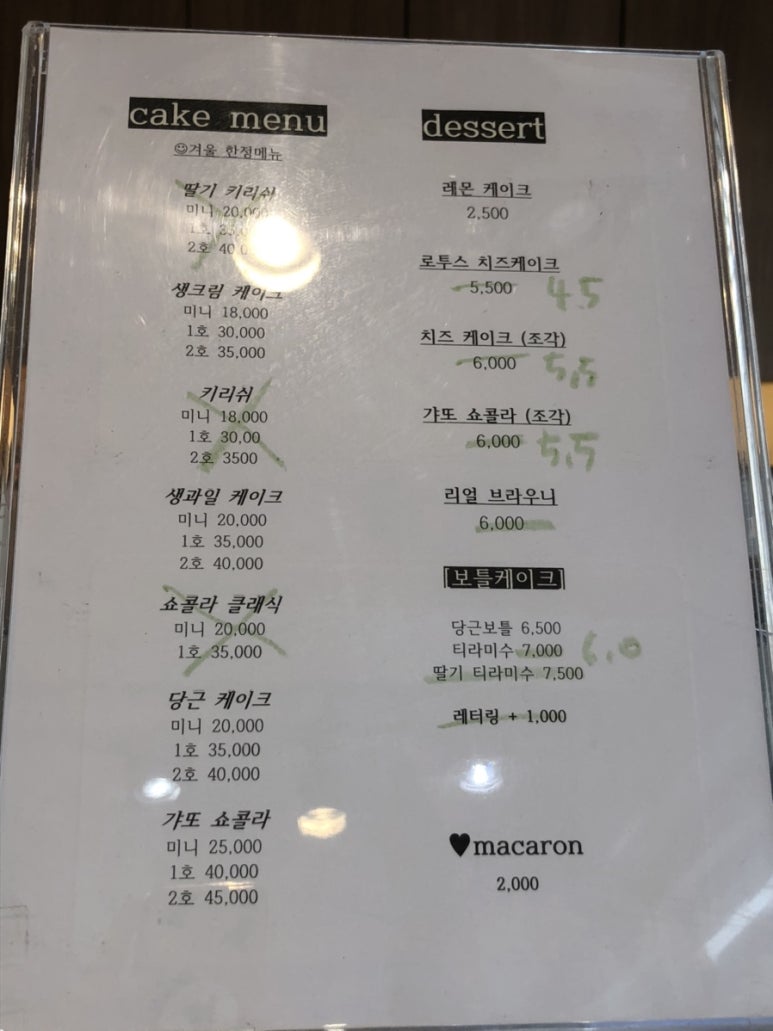 cake menu
☺겨울 한정메뉴
딸기 키리쉬
미니 20,000
1호 35,0
2호 40 0
생크림 케이크
미니 18,000
1호 30,000
2호 35,000
키리쉬
미니 18,000
1호 30,00
2호 3500
생과일 케이크
미니 20,000
1호 35,000
2호 40,000
쇼콜라 클래식
미니 20,000
1호 35,000
당근 케이크
미니 20,000
1호 35,000
2호 40,000
갸또 쇼콜라
미니 25,000
1호 40,000
2호 45,000
dessert
레몬 케이크
2,500
로투스 치즈케이크
5,500 4.5
치즈 케이크 (조각)
6,000 5,5
갸또 쇼콜라 (조각)
6,000 5,5
리얼 브라우니
6,000
[보틀케이크]
당근보틀 6,500
티라미수 7,000 6.0
딸기 티라미수 7,500
레터링 + 1,000
♥macaron
2,000